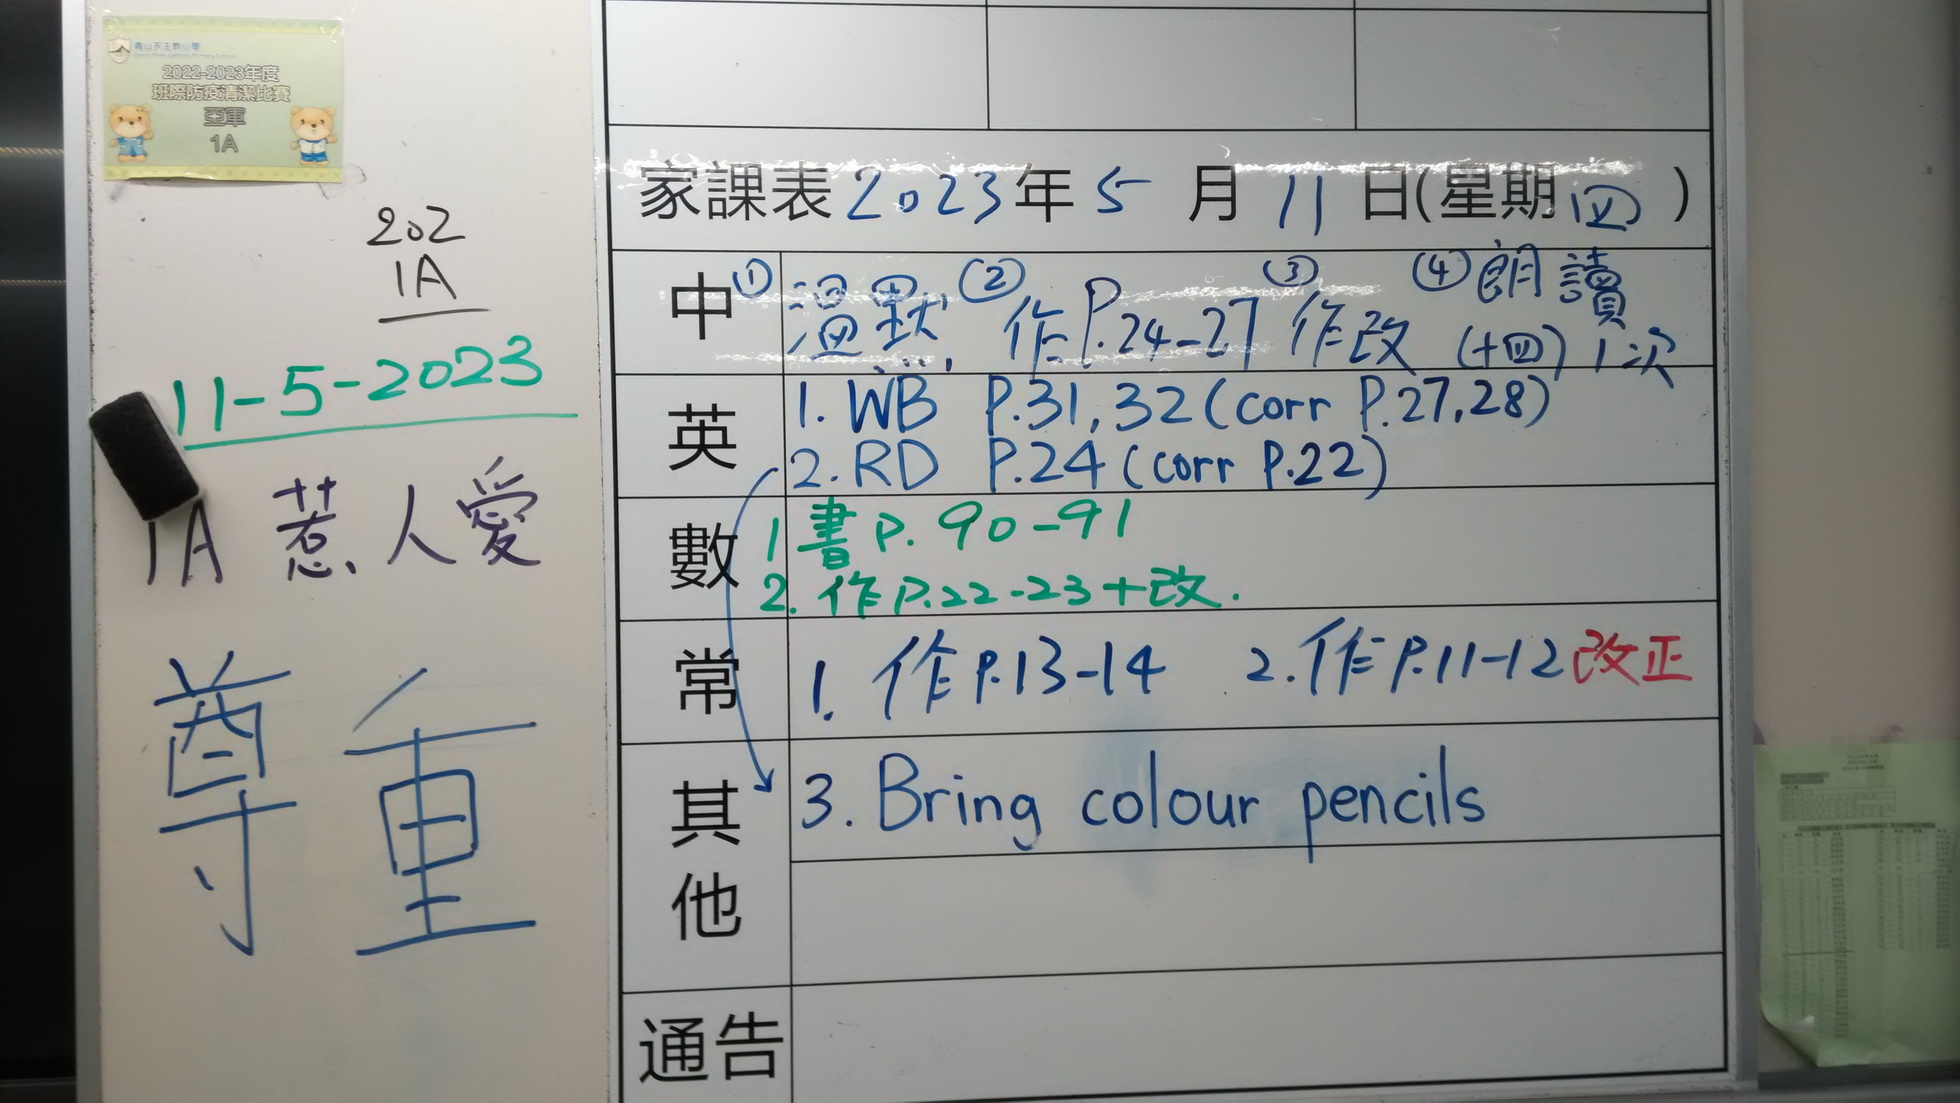 青山天主教小學
2022-2023年度
班際防疫清潔比賽
亞軍
1A
202
1A
11-5-2023
1A 惹人愛
尊重
家課表2023年5月11日(星期四)
中 ①溫默 ②作P.24-27 ③作改 ④朗讀(十四)1次
英 1. WB P.31,32(corr P.27,28)
2. RD P.24(corr P.22)
數 1 書P.90-91
2. 作P.22-23+改.
常 1. 作P.13-14 2.作P.11-12改正
其他 3. Bring colour pencils
通告